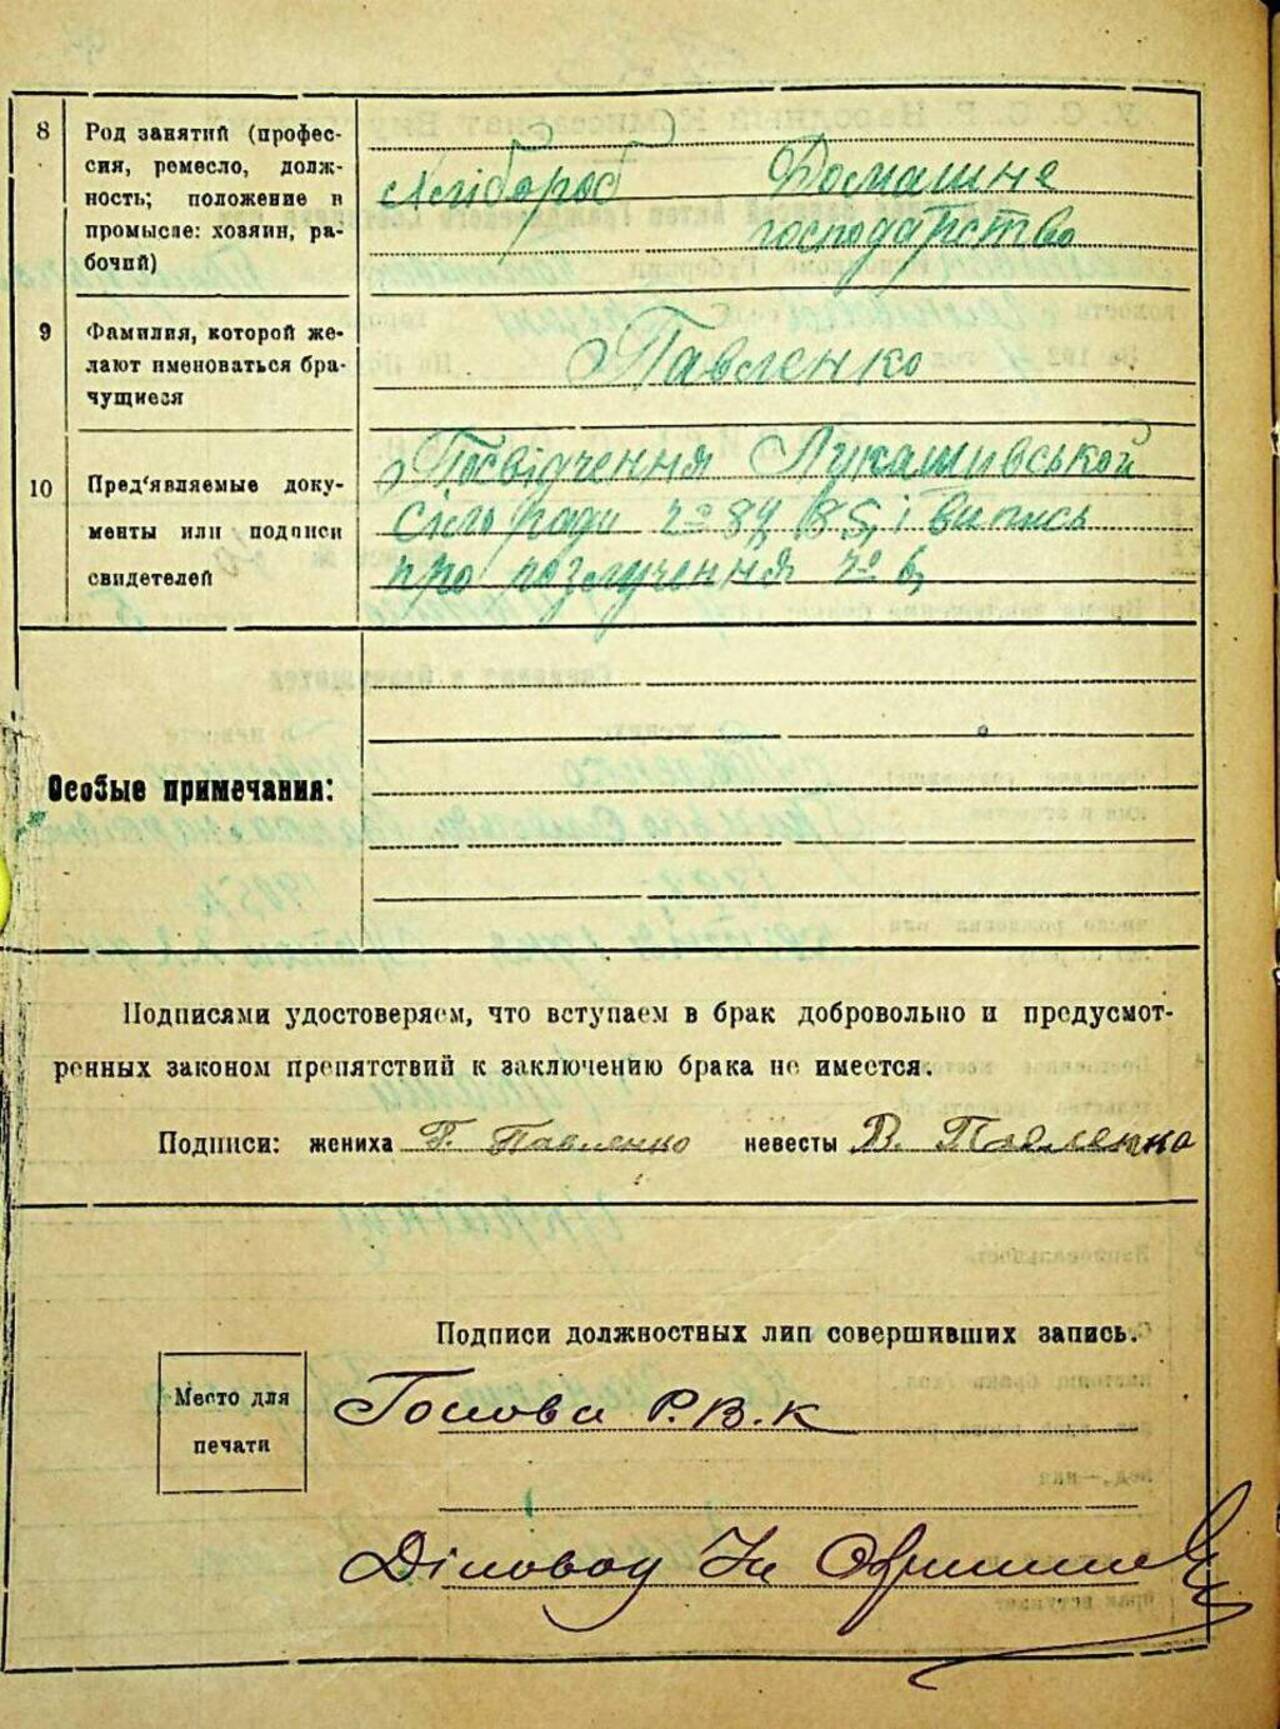 8
Род занятий (профес-
сия, ремесло, долж-
ность; положение в
промысле: хозяин, ра-
бочий)
Хлібороб Домашне
господарство
9
Фамилия, которой же-
лают именоваться бра-
чущиеся
Павленко
10
Пред'являемые доку-
менты или подписи
свидетелей
Посвідчення Лукашивської
Сільради № 84, 85, і випись
про розлучення № 6,
Особые примечания:
Подписями удостоверяем, что вступаем в брак добровольно и предусмот-
ренных законом препятствий к заключению брака не имеется.
Подписи: жениха Г. Павленко невесты В. Павленко
Подписи должностных лип совершивших запись.
Место для
печати
Голова Р.В.К
Діловод